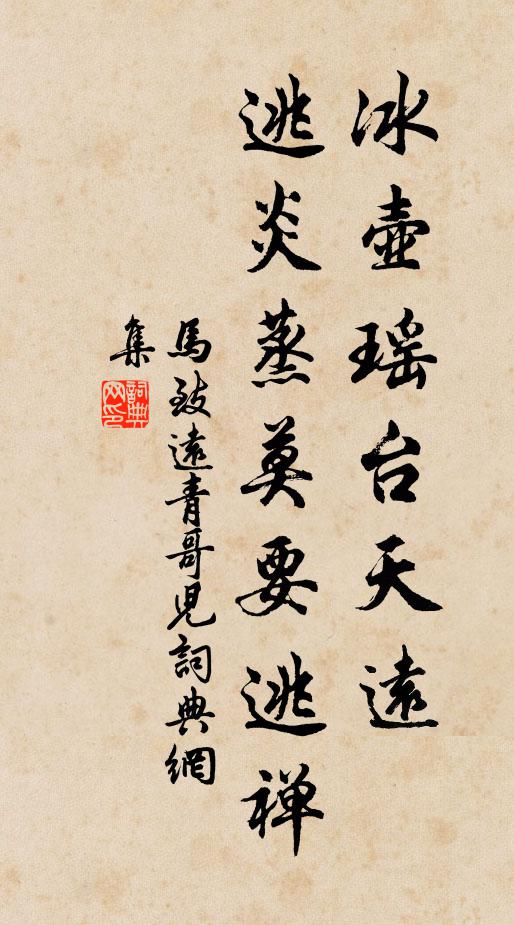 冰壺瑶台天遠
逃炎蒸莫要逃禅
馬致遠青哥兒詞典網
集
詞典
网印